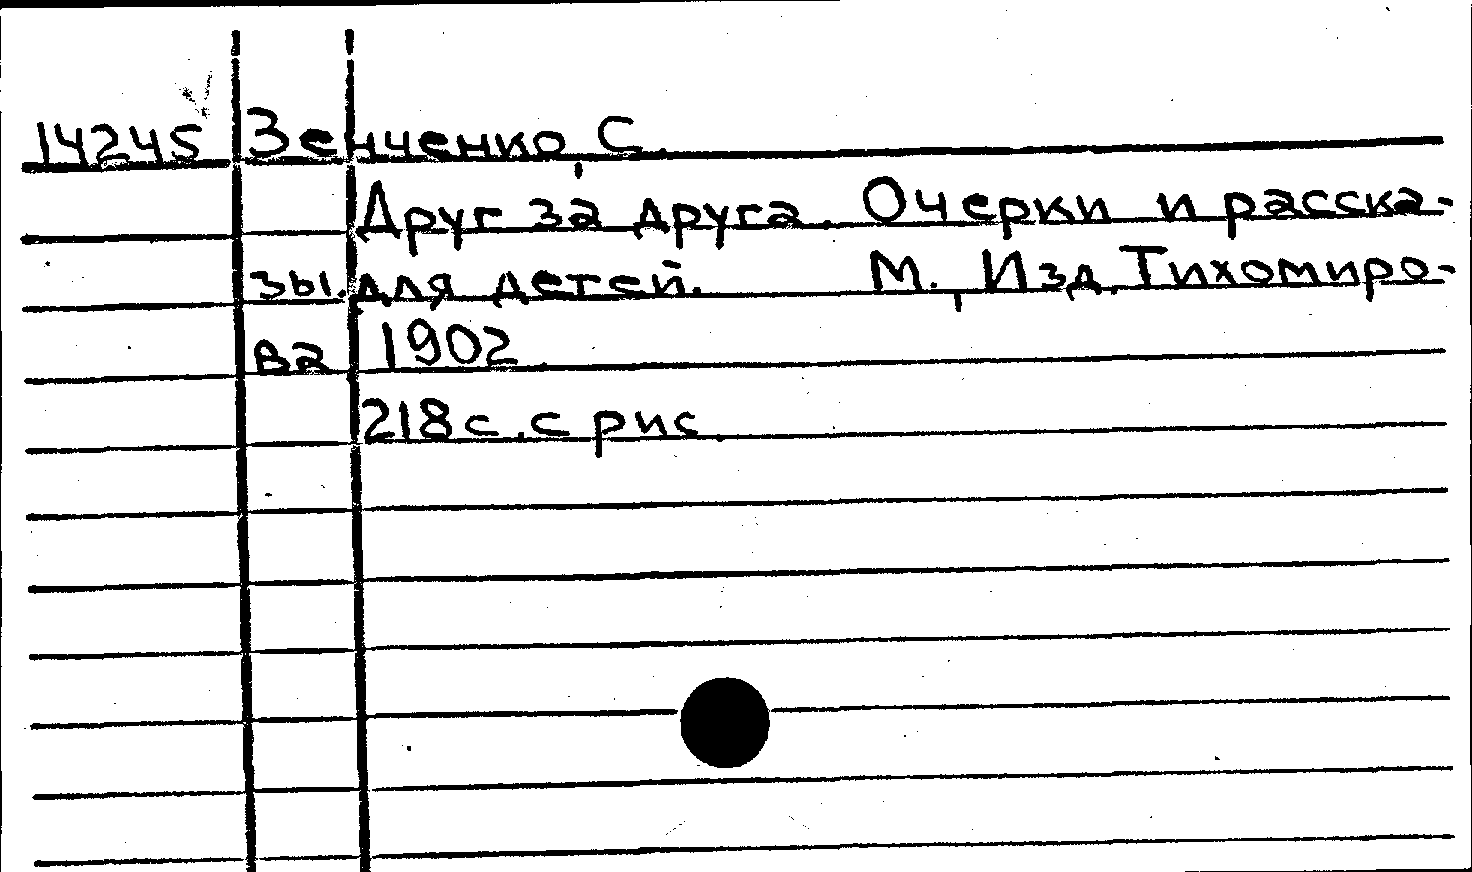 14245 Зенченко, С.
Друг за друга. Очерки и расска-
зы для детей. М., Изд. Тихомиро-
ва 1902
218 с. с рис.